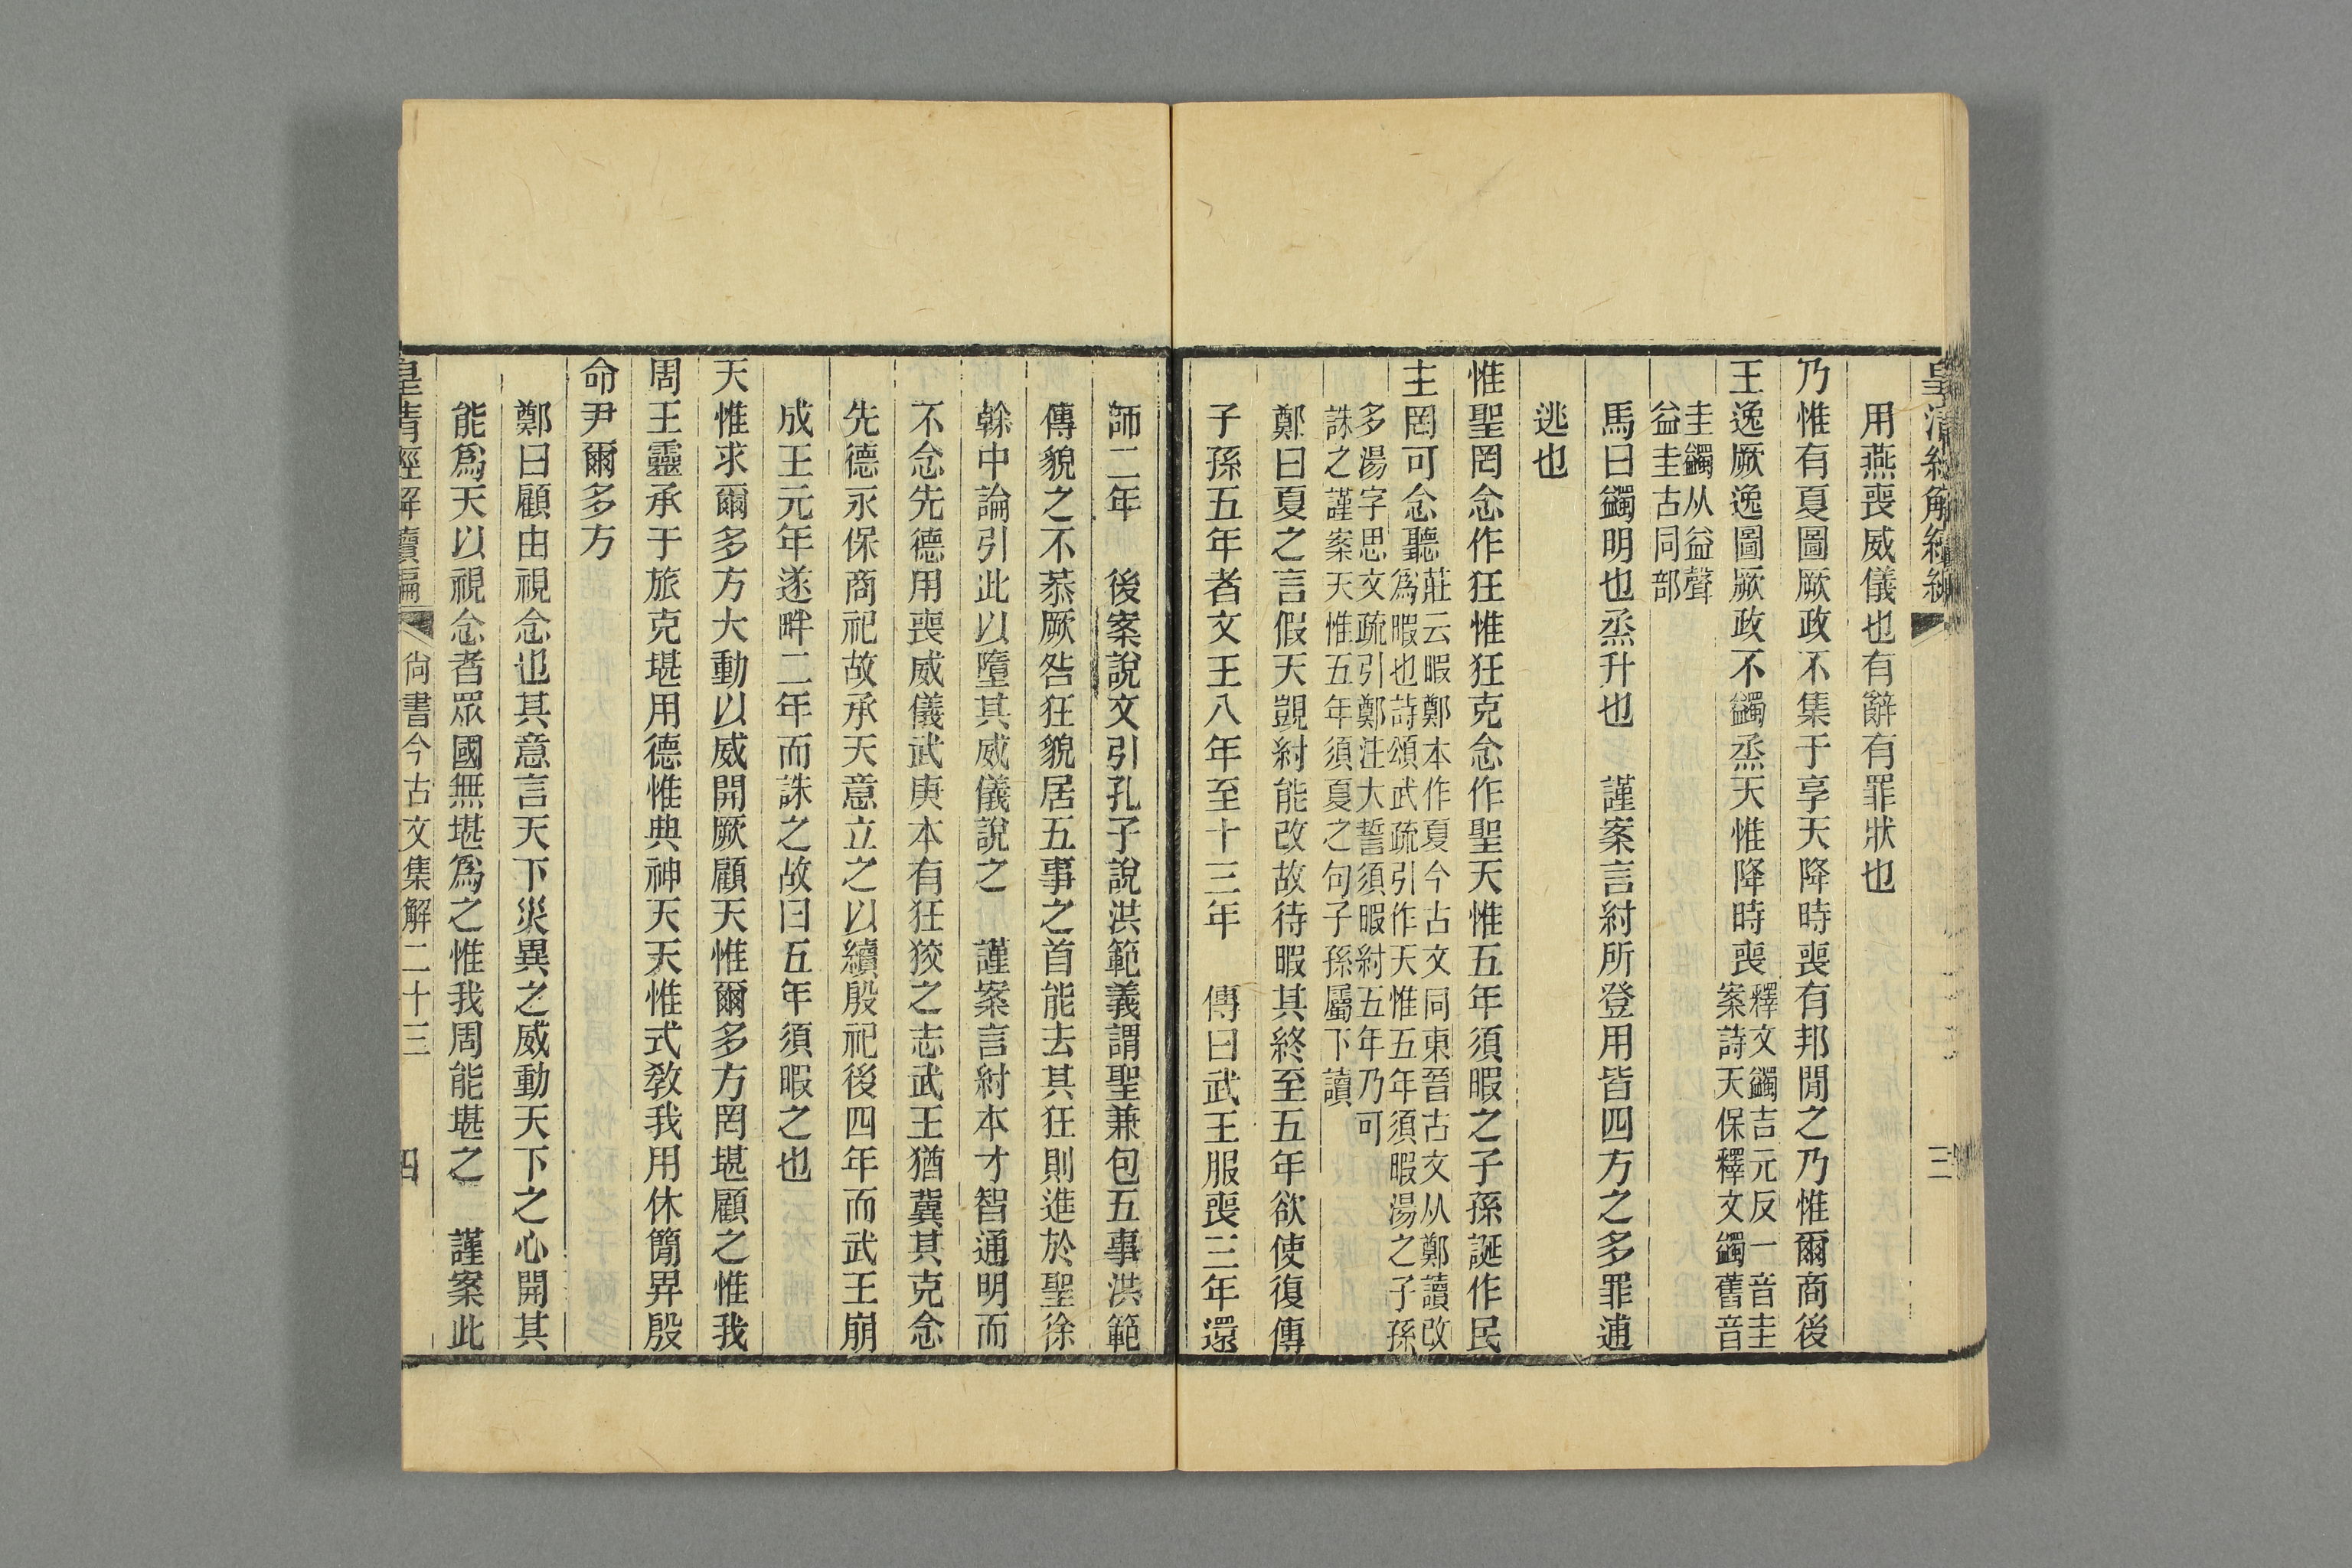 皇清經解續編
三
用燕喪威儀也有辭有罪狀也
乃惟有夏圖厥政不集于享天降時喪有邦閒之乃惟爾商後
王逸厥逸圖厥政不蠲烝天惟降時喪
釋文蠲吉元反一音圭
案詩天保釋文蠲舊音
圭蠲从益聲
益圭古同部
馬曰蠲明也烝升也　謹案言紂所登用皆四方之多罪逋
逃也
惟聖罔念作狂惟狂克念作聖天惟五年須暇之子孫誕作民
主罔可念聽
莊云暇鄭本作夏今古文同東晉古文从鄭讀改
爲暇也詩頌武疏引作天惟五年須暇湯之子孫
多湯字思文疏引鄭注大誓須暇紂五年乃可
誅之謹案天惟五年須夏之句子孫屬下讀
鄭曰夏之言假天覬紂能改故待暇其終至五年欲使復傳
子孫五年者文王八年至十三年　傳曰武王服喪三年還
師二年　後案說文引孔子說洪範義謂聖兼包五事洪範
傳貌之不恭厥咎狂貌居五事之首能去其狂則進於聖徐
榦中論引此以墮其威儀說之　謹案言紂本才智通明而
不念先德用喪威儀武庚本有狂狡之志武王猶冀其克念
先德永保商祀故承天意立之以續殷祀後四年而武王崩
成王元年遂畔二年而誅之故曰五年須暇之也
天惟求爾多方大動以威開厥顧天惟爾多方罔堪顧之惟我
周王靈承于旅克堪用德惟典神天天惟式敎我用休簡畀殷
命尹爾多方
鄭曰顧由視念也其意言天下災異之威動天下之心開其
能爲天以視念者眾國無堪爲之惟我周能堪之　謹案此
皇清經解續編
尙書今古文集解二十三
四